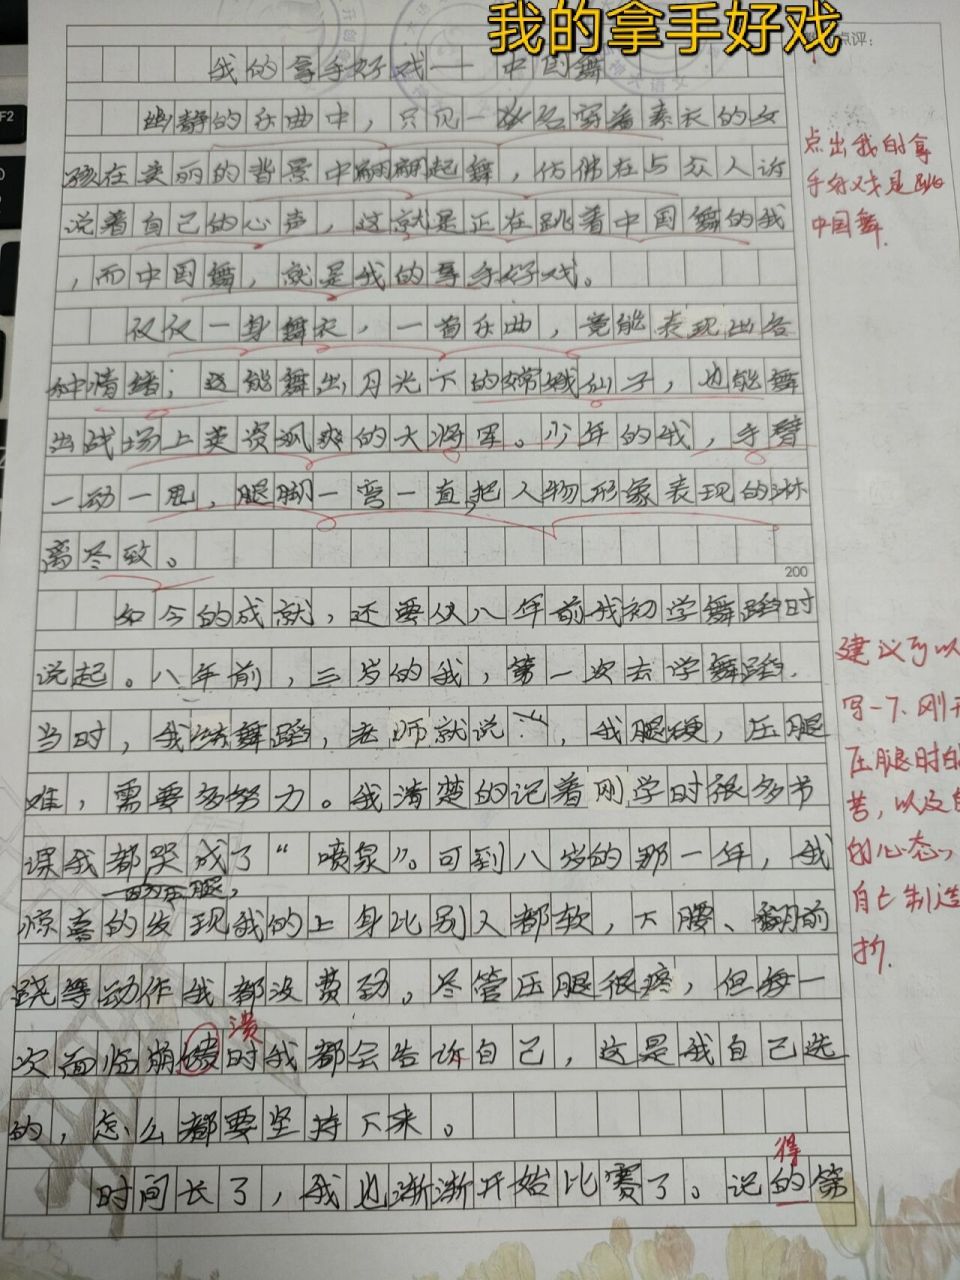 我的拿手好戏
点评：
我的拿手好戏——中国舞
幽静的乐曲中，只见一名穿着素衣的女
孩在美丽的背景中翩翩起舞，仿佛在与众人诉
说着自己的心声，这就是正在跳着中国舞的我
，而中国舞，就是我的拿手好戏。
仅仅一身舞衣，一首乐曲，竟能表现出各
种情绪；既能舞出月光下的嫦娥仙子，也能舞
出战场上英资飒爽的大将军。少年的我，手臂
一动一甩，腿脚一弯一直，把人物形象表现的淋
离尽致。
200
如今的成就，还要从八年前我初学舞蹈时
说起。八年前，三岁的我，第一次去学舞蹈.
当时，我练舞蹈，老师就说，我腿硬，压腿
难，需要多努力。我清楚的记着刚学时很多节
课我都哭成了“喷泉”。可到八岁的那一年，我
因为压腿，
惊喜的发现我的上身比别人都软，下腰、翻前
跷等动作我都没费劲。尽管压腿很疼，但每一
次面临崩时我都会告诉自己，这是我自己选
溃
的，怎么都要坚持下来。
时间长了，我也渐渐开始比赛了。记的第
得
点出我的拿
手好戏是跳
中国舞.
建议可以
写一下、刚开
压腿时的
苦，以及自
的心态，
自己制造
折.